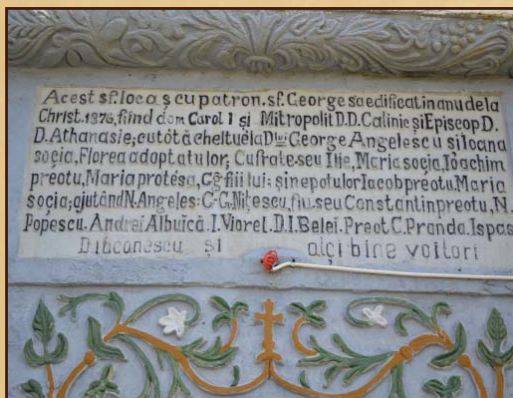 Acest sf. locaș cu patron. sf. George sa edificat in anu de la
Christ. 1876, fiind dom Carol I și Mitropolit D.D. Calinic și Episcop D.
D. Athanasie; cu tótă cheltuéla Dlui George Angelescu si Ioana
soçia, Florea adoptatu lor; Cu frate-seu Ilie, Maria soçia, Ióachim
preotu, Maria protésa, Cg fiii lui; și nepotu lor Iacob preotu, Maria
soçia; ajutând N. Angeles: C-G. Nițescu, fiu. seu Constantin preotu, N.
Popescu. Andrei Albuică. I. Viorel. D. I. Belei. Preot C. Pranda. Ispas
Dibconescu și alçi bine voitori